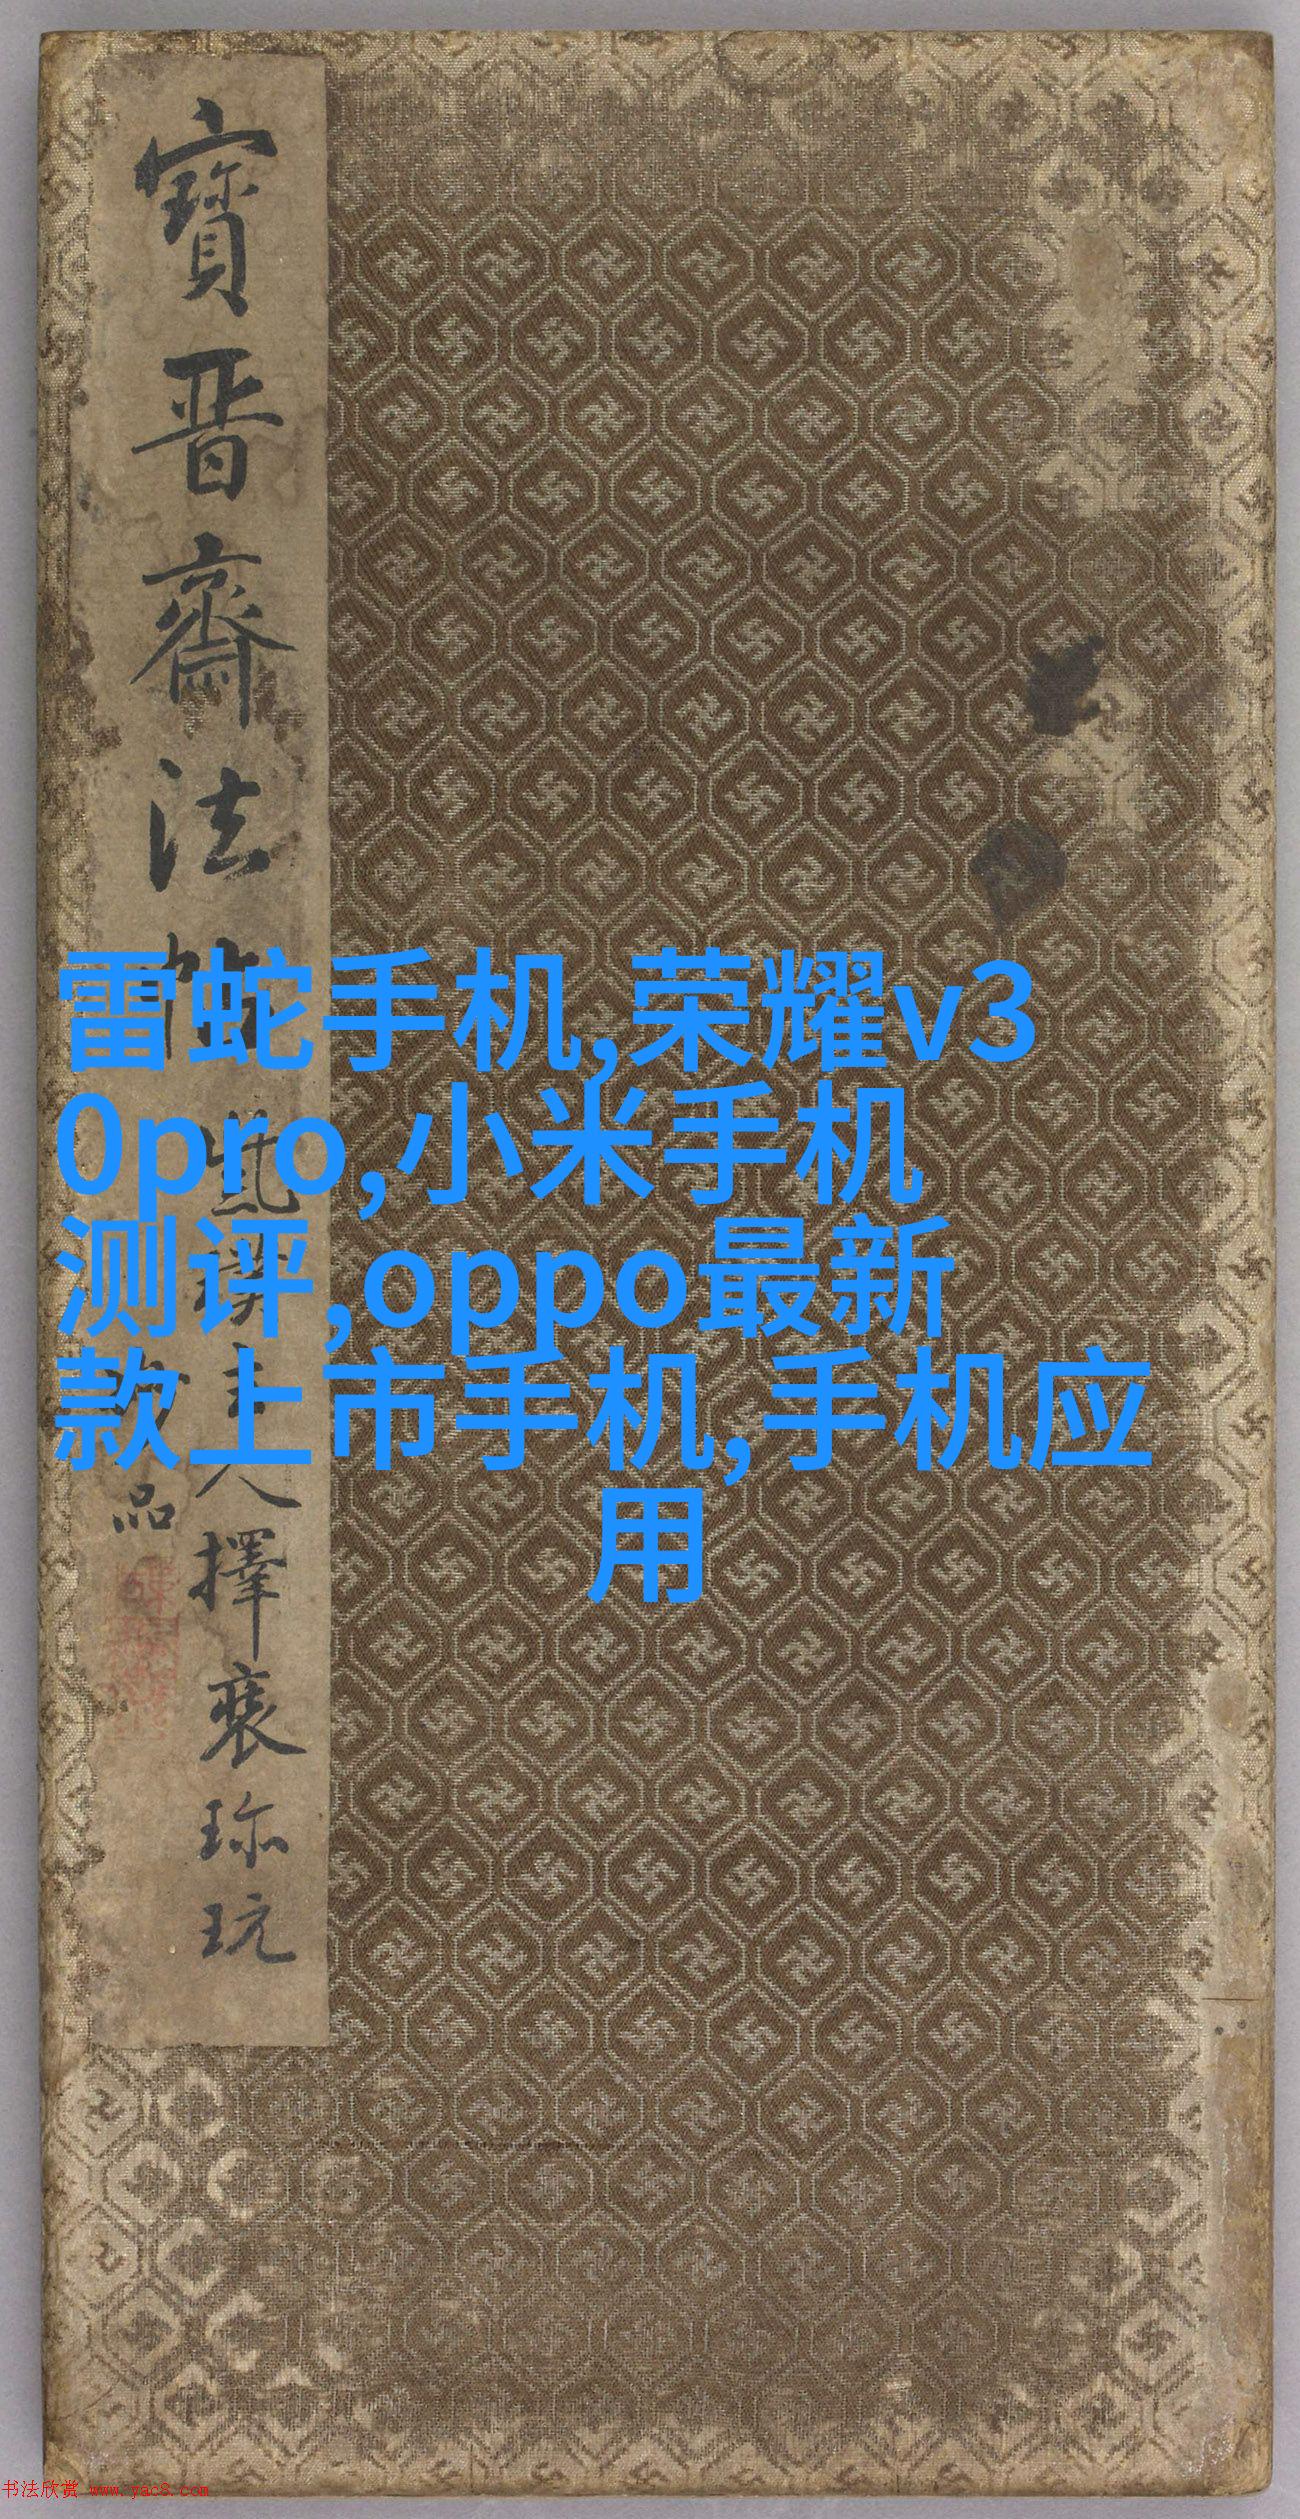 寶晋齋法帖
蕉樸主人擇裘珎玩
品
雷蛇手机,荣耀v3
0pro,小米手机
测评,oppo最新
款上市手机,手机应
用
书法欣赏 www.yac8.com